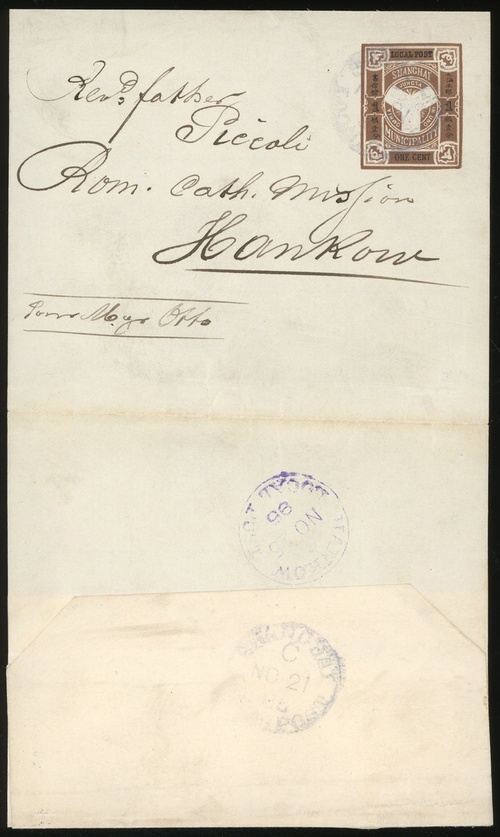 LOCAL POST
SHANGHAI
MUNICIPALITY
ONE CENT
Revd. father
Piccoli
Rom. Cath. Mission
Hankow
Otto
LOCAL POST HANKOW
NO
96
SHANGHAI
C
NO 21
LOCAL POST